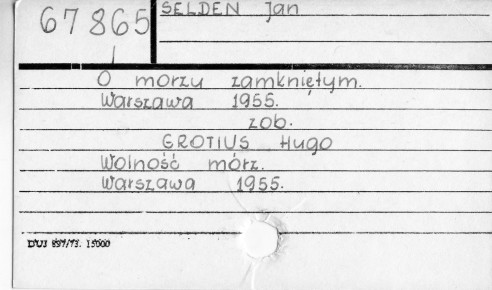 67865
SELDEN Jan
O morzu zamkniętym.
Warszawa 1955.
zob.
GROTIUS Hugo
Wolność mórz.
Warszawa 1955.
DUJ 897/73. 15000